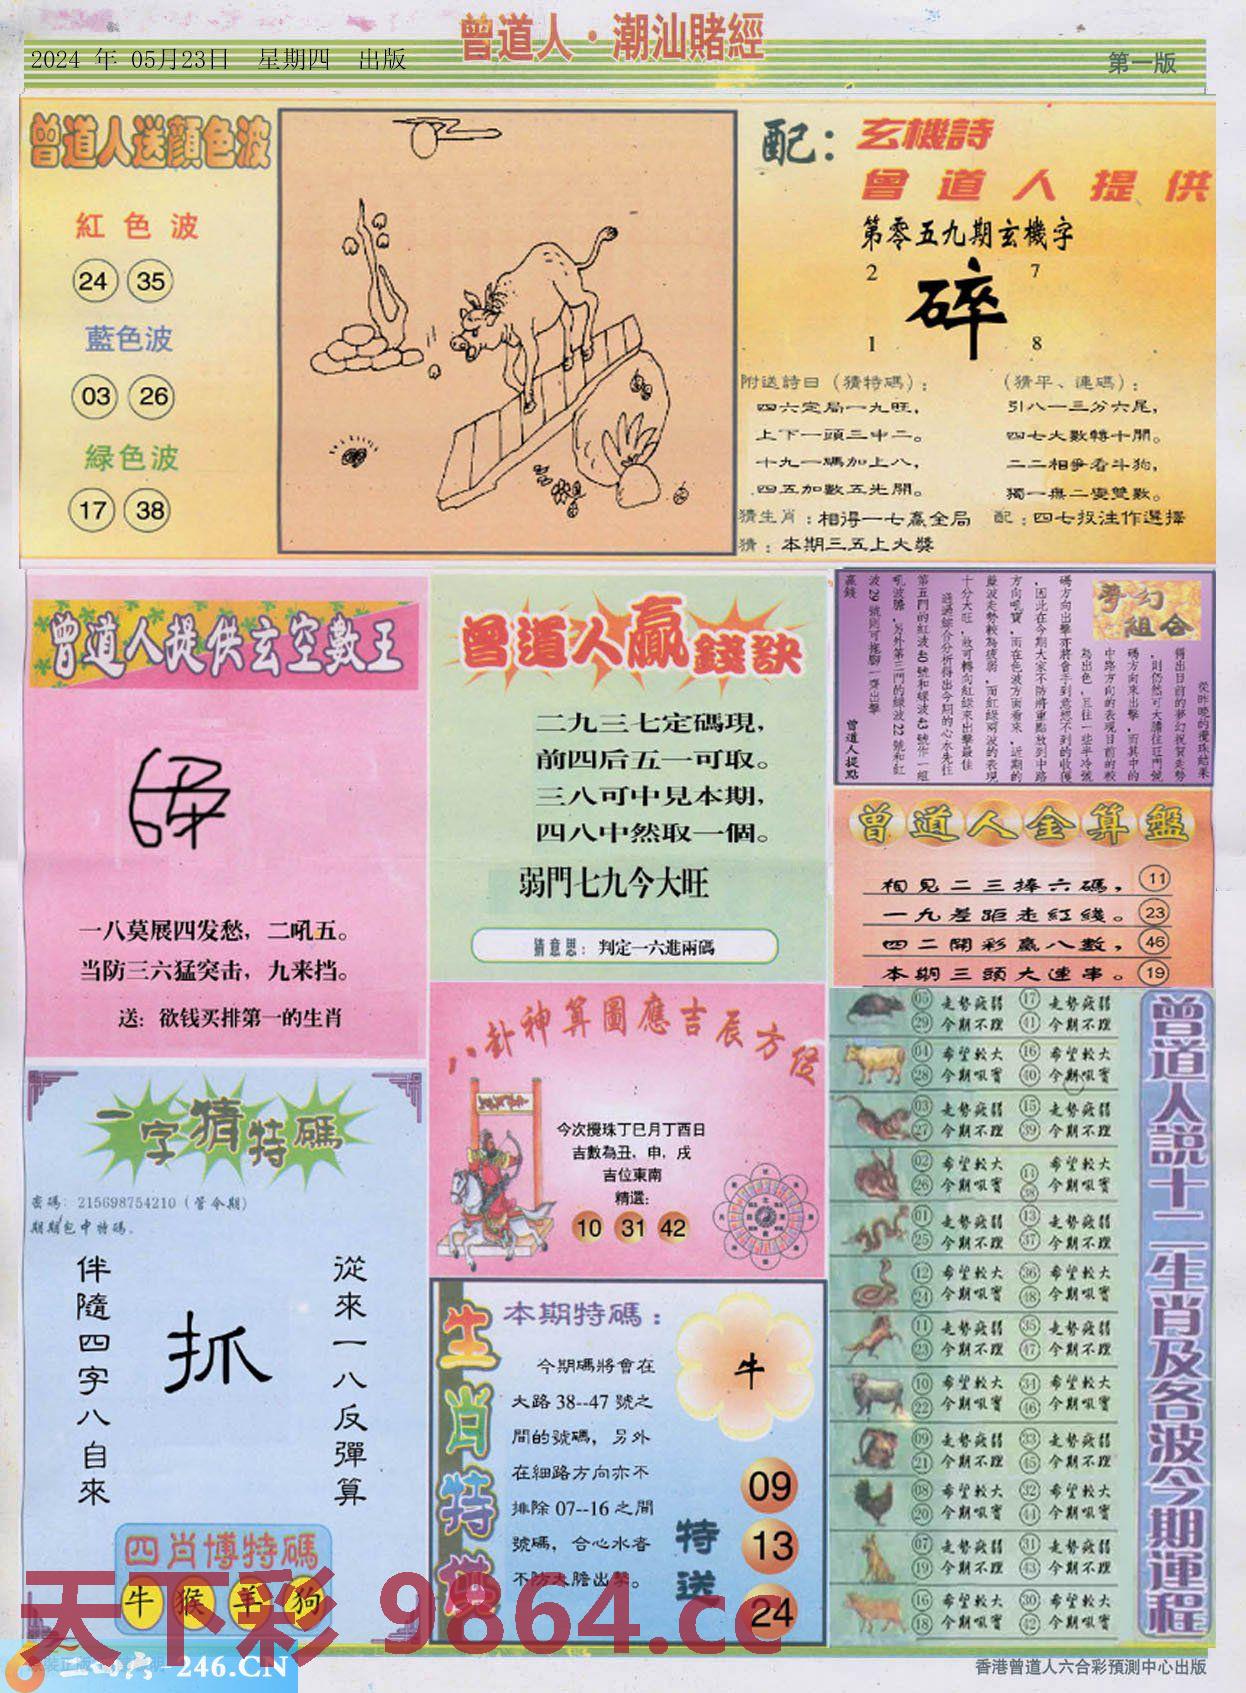 曾道人·潮汕賭經
2024 年 05月23日 星期四 出版
第一版
曾道人送顔色波
紅色波
24 35
藍色波
03 26
緑色波
17 38
配：
玄機詩
曾道人提供
第零五九期玄機字
2 7
碎
1 8
附送詩曰（猜特碼）：
四六定局一九旺，
上下一頭三中二。
十九一碼加上八，
四五加數五光開。
（猜平、連碼）：
引八一三分六尾，
四七大數轉十開。
二二相爭看斗狗，
獨一無二變雙數。
猜生肖：相得一七贏全局
配：四七投注作選擇
猜：本期三五上大獎
曾道人提供玄空數王
一八莫展四发愁，二吼五。
当防三六猛突击，九来挡。
送：欲钱买排第一的生肖
曾道人贏錢訣
二九三七定碼現，
前四后五一可取。
三八可中見本期，
四八中然取一個。
弱門七九今大旺
猜意思：判定一六進兩碼
夢幻組合
從昨晚的攪珠結果
得出目前的夢幻祝賀走勢
，則仍然可大膽往旺門號
碼方向來出擊，而其中的
中路方向的表現目前的較
為出色，且往一些半冷號
碼方向出擊亦將會手到意想不到的收獲
，因此在今期大家不防將重點放到中路
方向吼寶，而在色波方面看來，近期的
藍波走勢較為疲弱，而紅緑兩波的表現
十分大旺，故可轉向紅緑來出擊最佳
通過綜合分析得出今期的心水先往
第五門的紅波40號和緑波43號作一組
吼波膽，另外第三門的緑波22號和紅
波29號則可拖腳一齊出擊
贏錢
曾道人提點
曾道人金算盤
相見二三捧六碼， 11
一九差距走紅綫。 23
四二開彩贏八數， 46
本期三頭大連串。 19
一字猜特碼
密碼：215698754210（管今期）
期期包中特碼。
從來一八反彈算
抓
伴隨四字八自來
四肖博特碼
牛 猴 羊 狗
八卦神算圖應吉辰方位
今次攪珠丁巳月丁酉日
吉數為丑，申，戌
吉位東南
精選：
10 31 42
生肖特供
本期特碼：
今期碼將會在
大路 38--47 號之
間的號碼，另外
在細路方向亦不
排除 07--16 之間
號碼，合心水者
不防大膽出擊。
牛
特送
09
13
24
曾道人説十二生肖及各波今期運程
05 走勢疲弱 17 走勢疲弱
29 今期不理 41 今期不理
04 希望較大 16 希望較大
28 今期吼寶 40 今期吼寶
03 走勢疲弱 15 走勢疲弱
27 今期不理 39 今期不理
02 希望較大 14 希望較大
26 今期吼寶 38 今期吼寶
01 走勢疲弱 13 走勢疲弱
25 今期不理 37 今期不理
12 希望較大 36 希望較大
24 今期吼寶 48 今期吼寶
11 走勢疲弱 35 走勢疲弱
23 今期不理 47 今期不理
10 希望較大 34 希望較大
22 今期吼寶 46 今期吼寶
09 走勢疲弱 33 走勢疲弱
21 今期不理 45 今期不理
08 希望較大 32 希望較大
20 今期吼寶 44 今期吼寶
07 走勢疲弱 31 走勢疲弱
19 今期不理 43 今期不理
16 希望較大 30 希望較大
18 今期吼寶 42 今期吼寶
天下彩 9864.cc
二四六-246.CN
香港曾道人六合彩預測中心出版